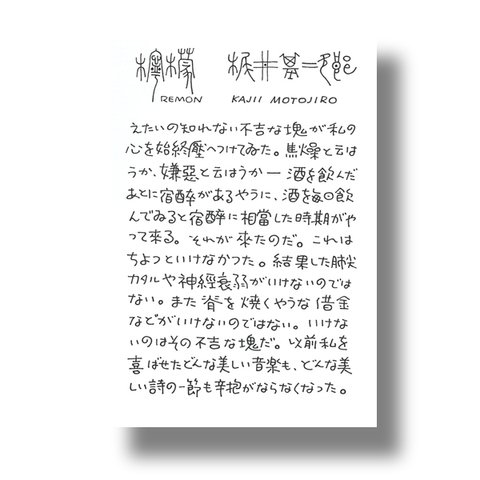 檸檬 梶井基二郎
REMON KAJII MOTOJIRO
えたいの知れない不吉な塊が私の
心を始終壓へつけてゐた。焦燥と云は
うか、嫌惡と云はうか―酒を飲んだ
あとに宿醉があるやうに、酒を毎日飲
んでゐると宿醉に相當した時期がや
って來る。それが來たのだ。これは
ちよつといけなかつた。結果した肺尖
カタルや神經衰弱がいけないのでは
ない。また脊を燒くやうな借金
などがいけないのではない。いけな
いのはその不吉な塊だ。以前私を
喜ばせたどんな美しい音楽も、どんな美
しい詩の一節も辛抱がならなくなつた。